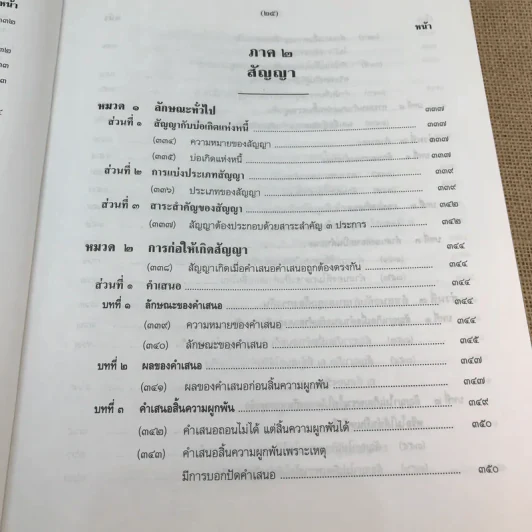 (๒๔)
หน้า
ภาค ๒
สัญญา
หมวด ๑ ลักษณะทั่วไป ๓๓๗
ส่วนที่ ๑ สัญญากับบ่อเกิดแห่งหนี้ ๓๓๗
(๓๓๔) ความหมายของสัญญา ๓๓๗
(๓๓๕) บ่อเกิดแห่งหนี้ ๓๓๗
ส่วนที่ ๒ การแบ่งประเภทสัญญา ๓๓๙
(๓๓๖) ประเภทของสัญญา ๓๓๙
ส่วนที่ ๓ สาระสำคัญของสัญญา ๓๔๒
(๓๓๗) สัญญาต้องประกอบด้วยสาระสำคัญ ๓ ประการ ๓๔๒
หมวด ๒ การก่อให้เกิดสัญญา ๓๔๔
(๓๓๘) สัญญาเกิดเมื่อคำเสนอคำสนองถูกต้องตรงกัน ๓๔๔
ส่วนที่ ๑ คำเสนอ ๓๔๔
บทที่ ๑ ลักษณะของคำเสนอ ๓๔๔
(๓๓๙) ความหมายของคำเสนอ ๓๔๔
(๓๔๐) ลักษณะของคำเสนอ ๓๔๕
บทที่ ๒ ผลของคำเสนอ ๓๔๗
(๓๔๑) ผลของคำเสนอก่อนสิ้นความผูกพัน ๓๔๗
บทที่ ๓ คำเสนอสิ้นความผูกพัน ๓๔๙
(๓๔๒) คำเสนอถอนไม่ได้ แต่สิ้นความผูกพันได้ ๓๕๐
(๓๔๓) คำเสนอสิ้นความผูกพันเพราะเหตุ
มีการบอกปัดคำเสนอ ๓๕๐